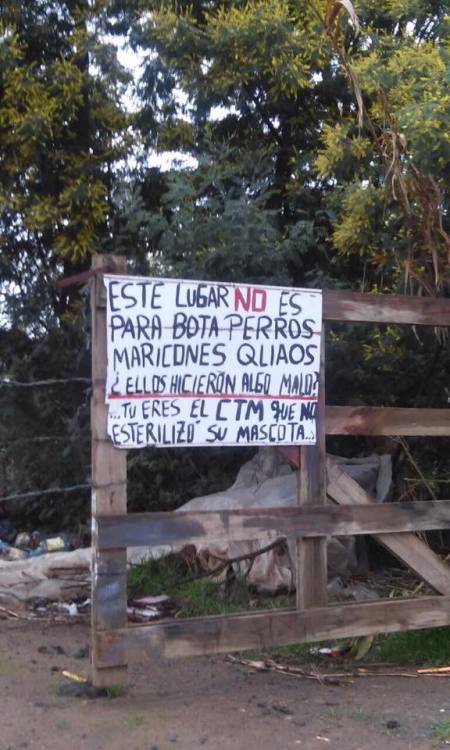 ESTE LUGAR NO ES
PARA BOTA PERROS
MARICONES QLIAOS
¿ELLOS HICIERÓN ALGO MALO?
...TU ERES EL CTM QUE NO
ESTERILIZÓ SU MASCOTA...